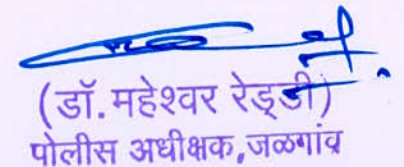 (डॉ. महेश्वर रेड्डी)
पोलीस अधीक्षक,जळगांव